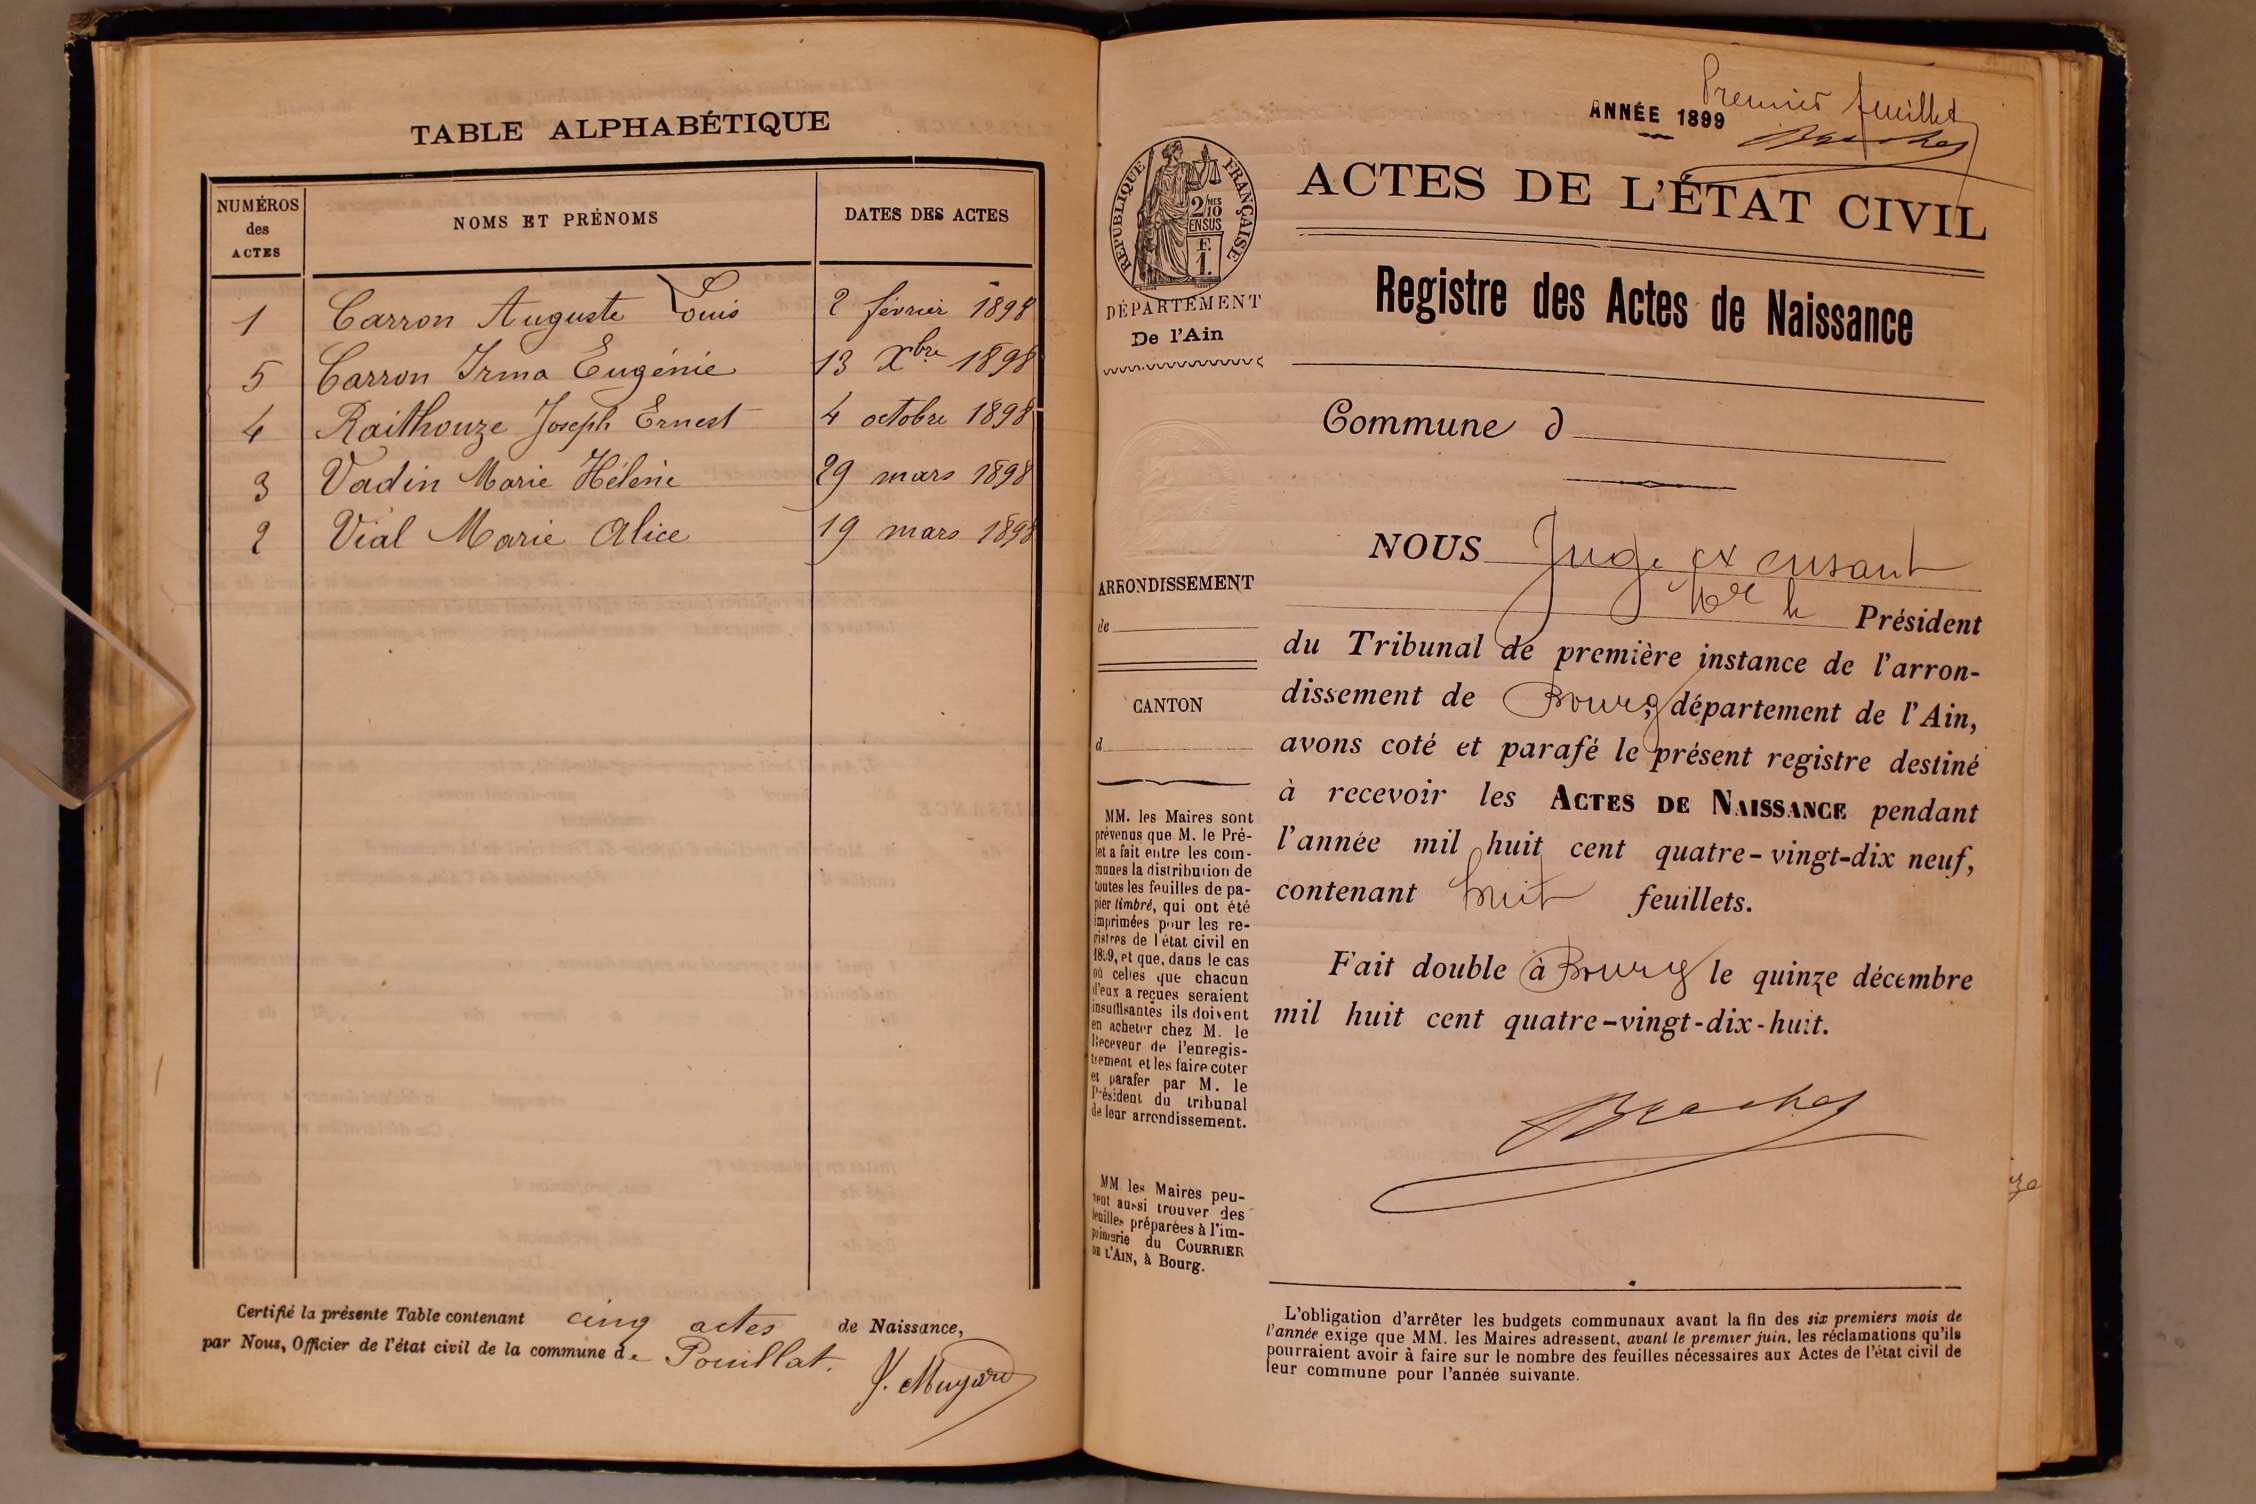 TABLE ALPHABÉTIQUE
NUMÉROS
des
ACTES
NOMS ET PRÉNOMS
DATES DES ACTES
1 Carron Auguste Louis 2 février 1898
5 Carron Irma Eugénie 13 Xbre 1898
4 Raithouze Joseph Ernest 4 octobre 1898
3 Vadin Marie Hélène 29 mars 1898
2 Vial Marie Alice 19 mars 1898
Certifié la présente Table contenant cinq actes de Naissance,
par Nous, Officier de l'état civil de la commune de Pouillat.
ANNÉE 1899
Premier feuillet
ACTES DE L'ÉTAT CIVIL
RÉPUBLIQUE FRANÇAISE
2/10 MES
EN SUS
F.
1.
DÉPARTEMENT
De l'Ain
Registre des Actes de Naissance
Commune d
NOUS Juge
Président
du Tribunal de première instance de l'arron-
dissement de Bourg, département de l'Ain,
avons coté et parafé le présent registre destiné
à recevoir les ACTES DE NAISSANCE pendant
l'année mil huit cent quatre-vingt-dix neuf,
contenant huit feuillets.
Fait double à Bourg le quinze décembre
mil huit cent quatre-vingt-dix-huit.
ARRONDISSEMENT
de
CANTON
d
MM. les Maires sont
prévenus que M. le Pré-
fet a fait entre les com-
munes la distribution de
toutes les feuilles de pa-
pier timbré, qui ont été
imprimées pour les re-
gistres de l'état civil en
1899, et que, dans le cas
où celles que chacun
d'eux a reçues seraient
insuffisantes ils doivent
en acheter chez M. le
Receveur de l'enregis-
trement et les faire coter
et parafer par M. le
Président du tribunal
de leur arrondissement.
MM. les Maires peu-
vent aussi trouver des
feuilles préparées à l'im-
primerie du COURRIER
DE L'AIN, à Bourg.
L'obligation d'arrêter les budgets communaux avant la fin des six premiers mois de
l'année exige que MM. les Maires adressent, avant le premier juin, les réclamations qu'ils
pourraient avoir à faire sur le nombre des feuilles nécessaires aux Actes de l'état civil de
leur commune pour l'année suivante.